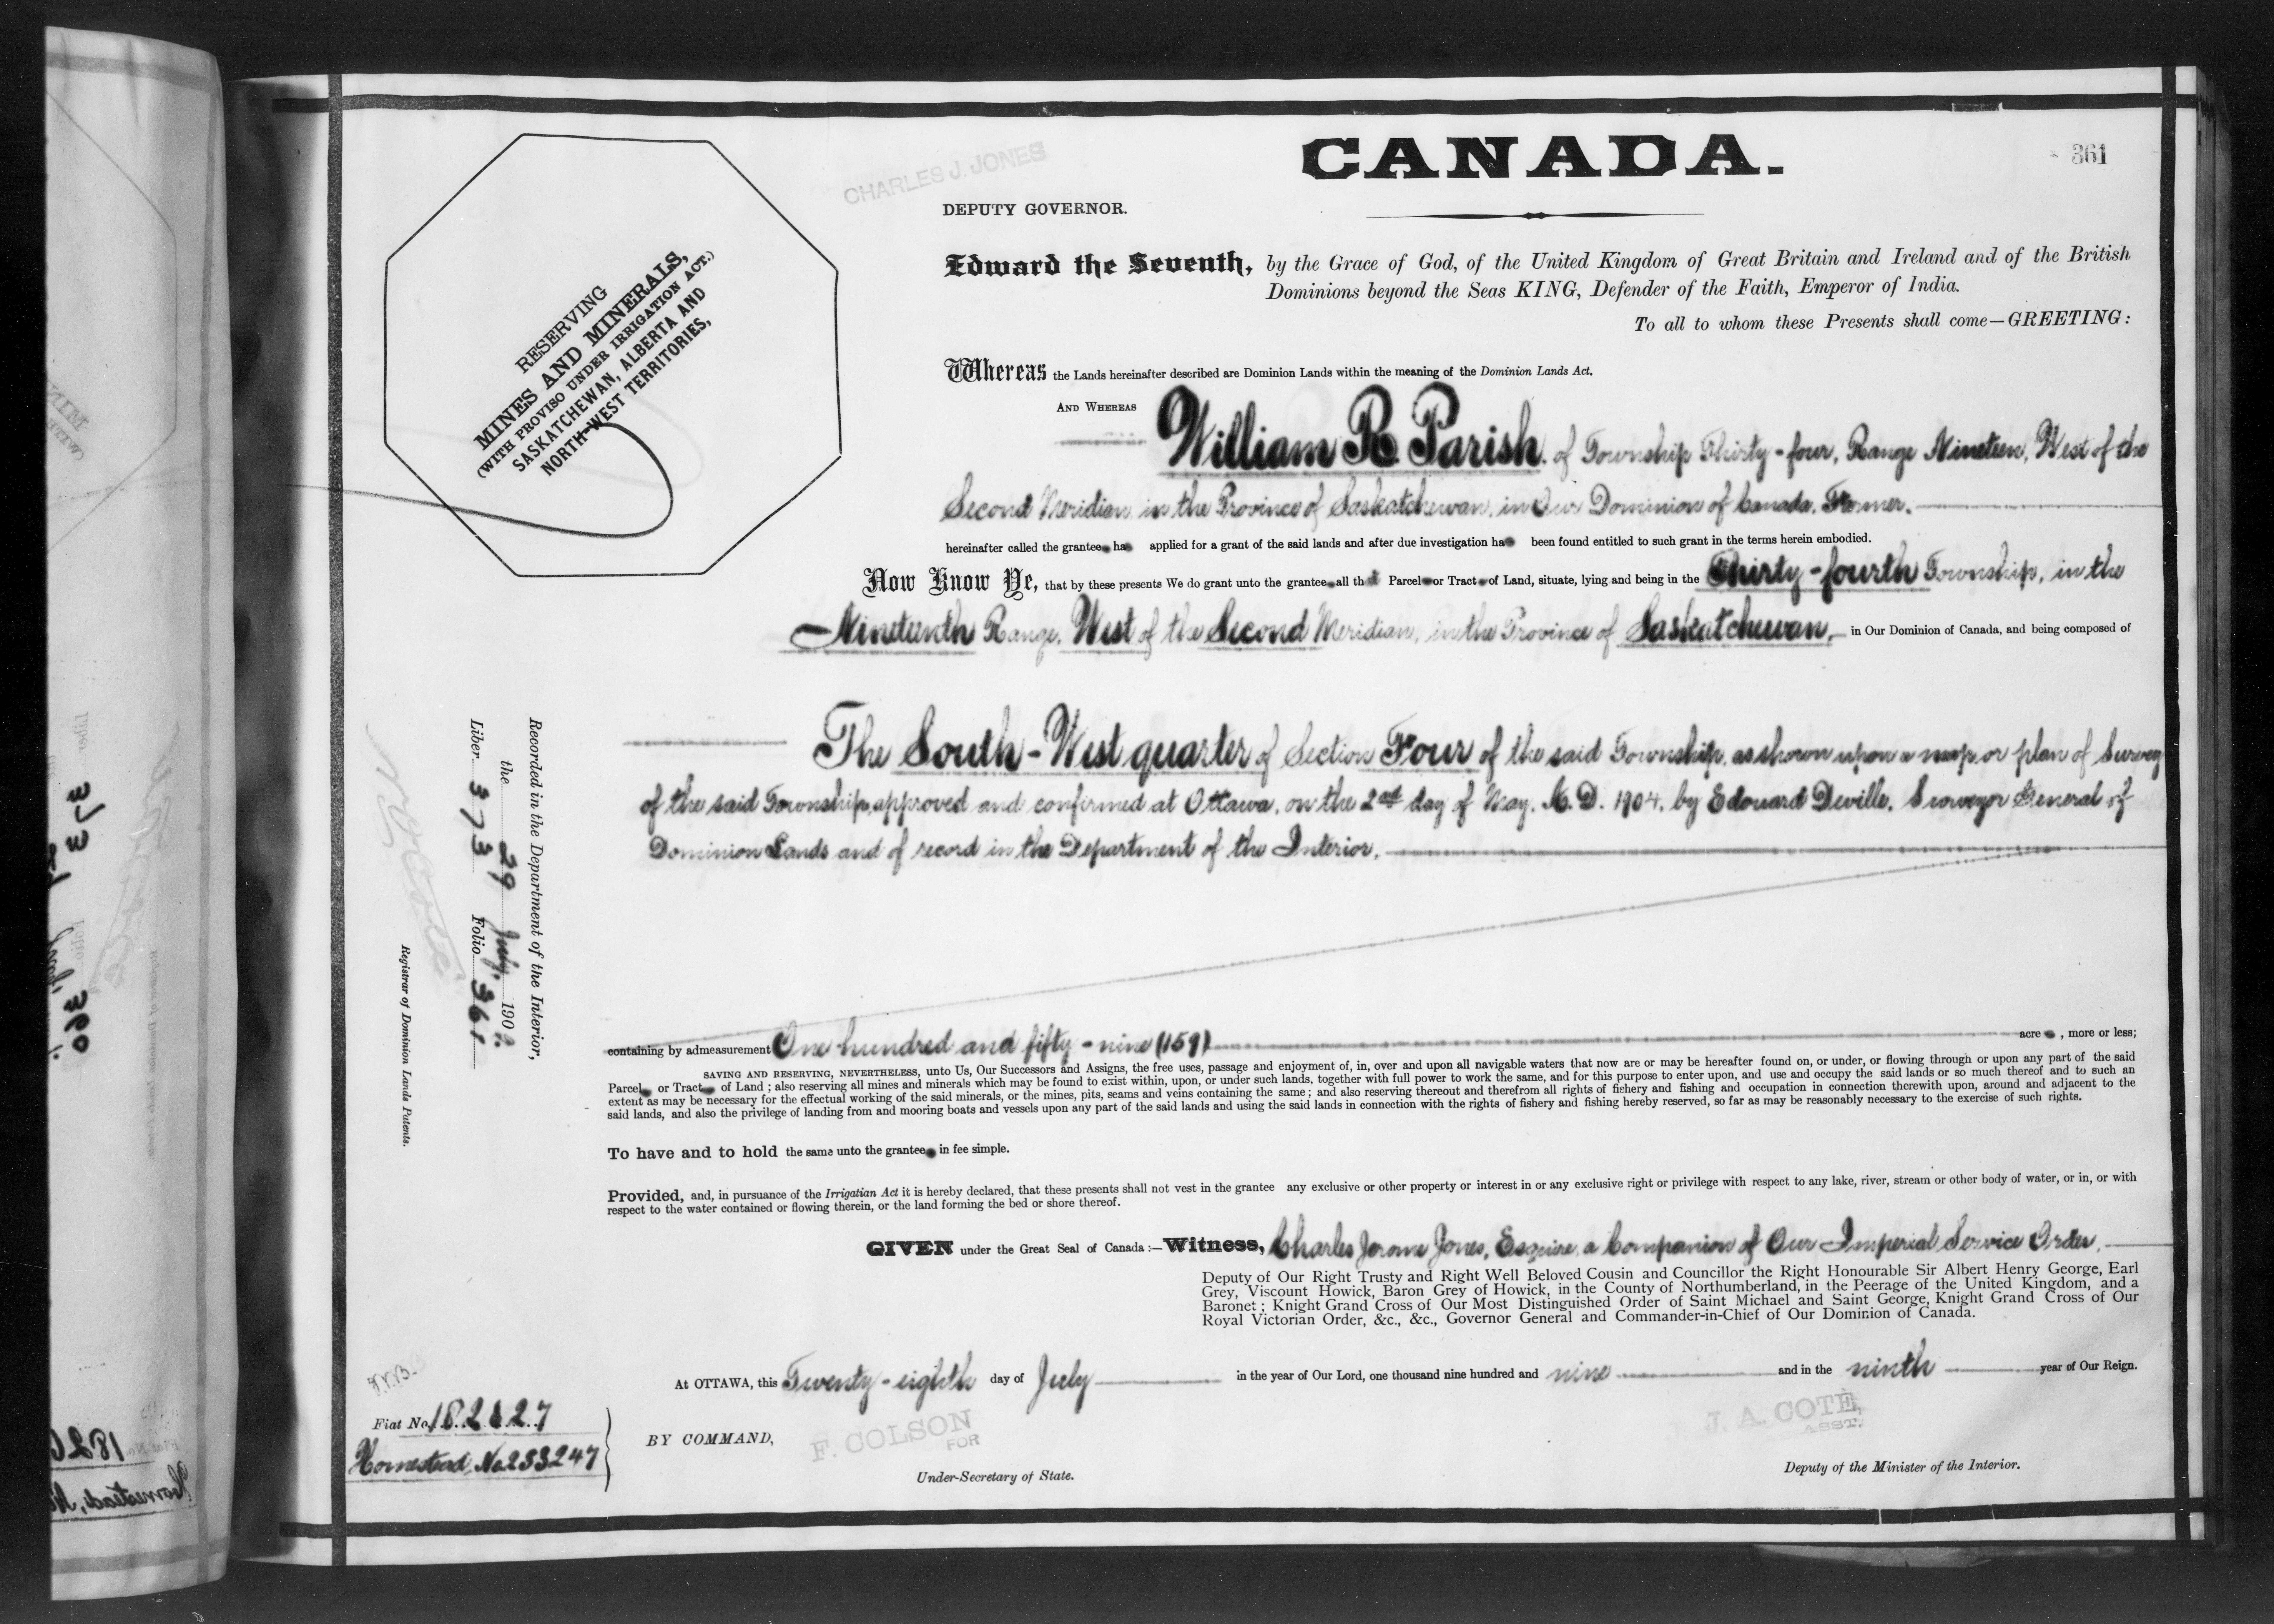 CHARLES J. JONES
CANADA.
361
DEPUTY GOVERNOR.
RESERVING
MINES AND MINERALS,
(WITH PROVISO UNDER IRRIGATION ACT.)
SASKATCHEWAN, ALBERTA AND
NORTH-WEST TERRITORIES,
Edward the Seventh, by the Grace of God, of the United Kingdom of Great Britain and Ireland and of the British
Dominions beyond the Seas KING, Defender of the Faith, Emperor of India.
To all to whom these Presents shall come—GREETING:
Whereas the Lands hereinafter described are Dominion Lands within the meaning of the Dominion Lands Act.
AND WHEREAS
William R. Parish, of Township Thirty-four, Range Nineteen, West of the
Second Meridian in the Province of Saskatchewan, in Our Dominion of Canada, Farmer.
hereinafter called the grantee ha applied for a grant of the said lands and after due investigation ha been found entitled to such grant in the terms herein embodied.
Now Know Ye, that by these presents We do grant unto the grantee all th t Parcel or Tract of Land, situate, lying and being in the Thirty-fourth Township, in the
Nineteenth Range, West of the Second Meridian, in the Province of Saskatchewan, in Our Dominion of Canada, and being composed of
The South-West quarter of Section Four of the said Township, as shown upon a map or plan of Survey
of the said Township, approved and confirmed at Ottawa, on the 2nd day of May, A.D. 1904, by Edouard Deville, Surveyor General of
Dominion Lands and of record in the Department of the Interior.
Recorded in the Department of the Interior,
the 29 July, 1909.
Liber 373 Folio 361
Registrar of Dominion Lands Patents.
containing by admeasurement One hundred and fifty-nine (159) acre , more or less;
SAVING AND RESERVING, NEVERTHELESS, unto Us, Our Successors and Assigns, the free uses, passage and enjoyment of, in, over and upon all navigable waters that now are or may be hereafter found on, or under, or flowing through or upon any part of the said
Parcel or Tract of Land ; also reserving all mines and minerals which may be found to exist within, upon, or under such lands, together with full power to work the same, and for this purpose to enter upon, and use and occupy the said lands or so much thereof and to such an
extent as may be necessary for the effectual working of the said minerals, or the mines, pits, seams and veins containing the same ; and also reserving thereout and therefrom all rights of fishery and fishing and occupation in connection therewith upon, around and adjacent to the
said lands, and also the privilege of landing from and mooring boats and vessels upon any part of the said lands and using the said lands in connection with the rights of fishery and fishing hereby reserved, so far as may be reasonably necessary to the exercise of such rights.
To have and to hold the same unto the grantee in fee simple.
Provided, and, in pursuance of the Irrigatian Act it is hereby declared, that these presents shall not vest in the grantee any exclusive or other property or interest in or any exclusive right or privilege with respect to any lake, river, stream or other body of water, or in, or with
respect to the water contained or flowing therein, or the land forming the bed or shore thereof.
GIVEN under the Great Seal of Canada :—Witness, Charles Jerome Jones, Esquire, a Companion of Our Imperial Service Order,
Deputy of Our Right Trusty and Right Well Beloved Cousin and Councillor the Right Honourable Sir Albert Henry George, Earl
Grey, Viscount Howick, Baron Grey of Howick, in the County of Northumberland, in the Peerage of the United Kingdom, and a
Baronet ; Knight Grand Cross of Our Most Distinguished Order of Saint Michael and Saint George, Knight Grand Cross of Our
Royal Victorian Order, &c., &c., Governor General and Commander-in-Chief of Our Dominion of Canada.
At OTTAWA, this Twenty-eighth day of July in the year of Our Lord, one thousand nine hundred and nine and in the ninth year of Our Reign.
Fiat No. 182627
Homestead, No. 233247
BY COMMAND,
F. COLSON
FOR
Under-Secretary of State.
J. A. COTÉ,
ASST.
Deputy of the Minister of the Interior.